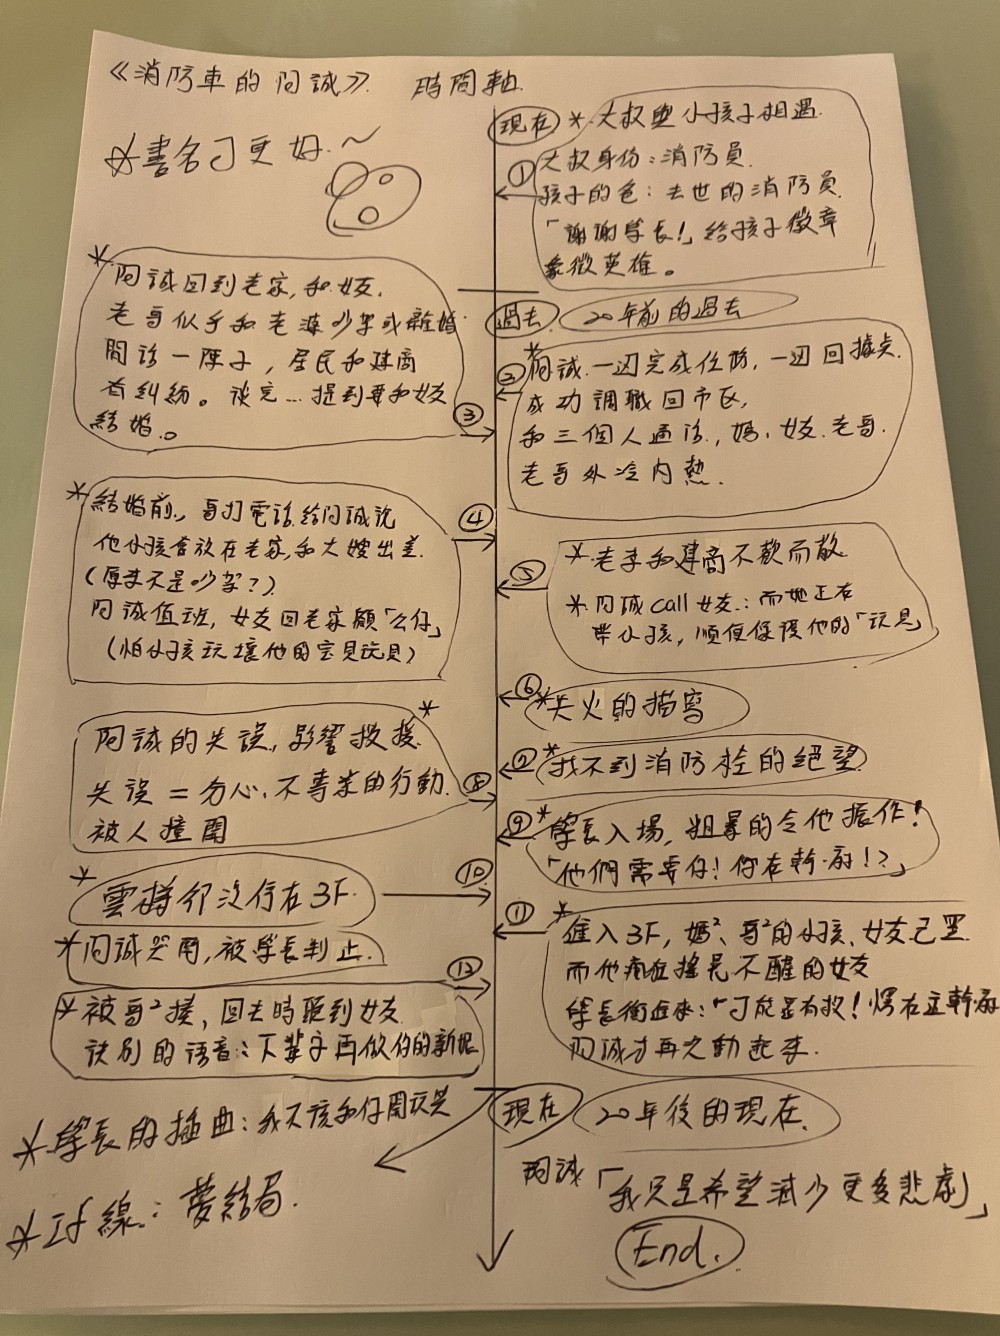 《消防車的阿誠》 時間軸
☆書名可更好~
現在
* 大叔與小孩子相遇
① 大叔身份：消防員
孩子的爸：去世的消防員
「謝謝學長!」給孩子徽章
象徵英雄。
過去 20年前的過去
② *阿誠一边完成任務，一边回據点.
成功調職回市区,
和三個人通話，媽、女友.老哥.
老哥外冷內熱.
* 阿誠回到老家，和女友.
老哥似乎和老婆吵架或離婚
閒話一陣子，居民和建商
有糾紛。談完…提到要和女友
結婚。
③
* 結婚前，哥打電話給阿誠說
他小孩會放在老家，和大嫂出差.
(原來不是吵架?)
阿誠值班，女友回老家顧「公仔」
(怕小孩玩壞他的宝見玩具)
④
⑤ * 老李和建商不歡而散
* 阿誠call女友：而她正在
帶小孩，順便保護他的「玩具」
⑥ *失火的描寫
⑦ *找不到消防栓的絕望
* 阿誠的失誤，影響救援.
失誤 = 分心、不專業的行動.
被人撞開
⑧
⑨ *學長入場，粗暴的令他振作!
「他們需要你! 你在幹麻!?」
* 雲梯卻沒停在3F
⑩
⑪ * 進入3F，媽²、哥²的小孩、女友已罹
而他瘋狂搖晃不醒的女友
學長衝進來：「可能是有救! 愣在這幹麻
阿誠才再次動起來.
* 阿誠哭鬧，被學長制止.
* 被哥²揍，回去時聽到女友
訣別的語音：下輩子再做你的新娘
⑫
現在 20年後的現在.
* 學長的插曲：我不該和仔開玩笑
阿誠「我只是希望減少更多悲劇」
End.
* If線：夢結局.